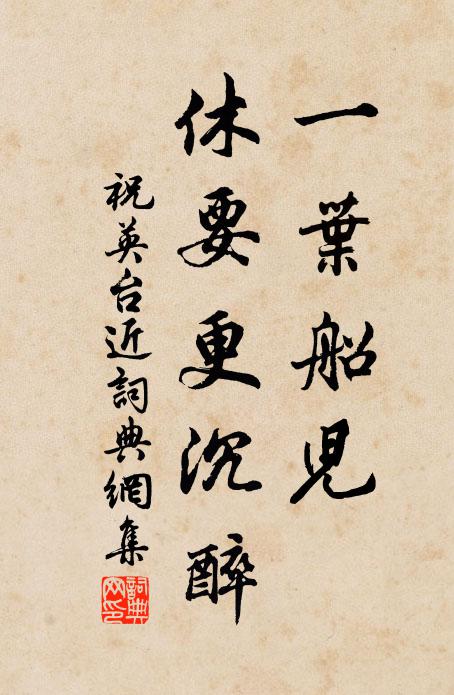 一葉船兒
休要更沉醉
祝英台近詞典網集
詞典網印